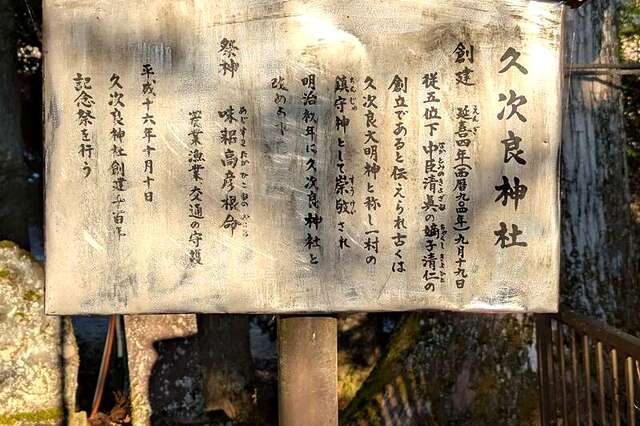 久次良神社
創建 延喜四年(西暦九〇四年)九月十九日
従五位下中臣清眞の嫡子清仁の
創立であると伝えられ古くは
久次良大明神と称し一村の
鎮守神として崇敬され
明治初年に久次良神社と
改め
祭神 味耜高彦根命
営業漁業交通の守護
平成十六年十月十日
久次良神社創建千百年
記念祭を行う